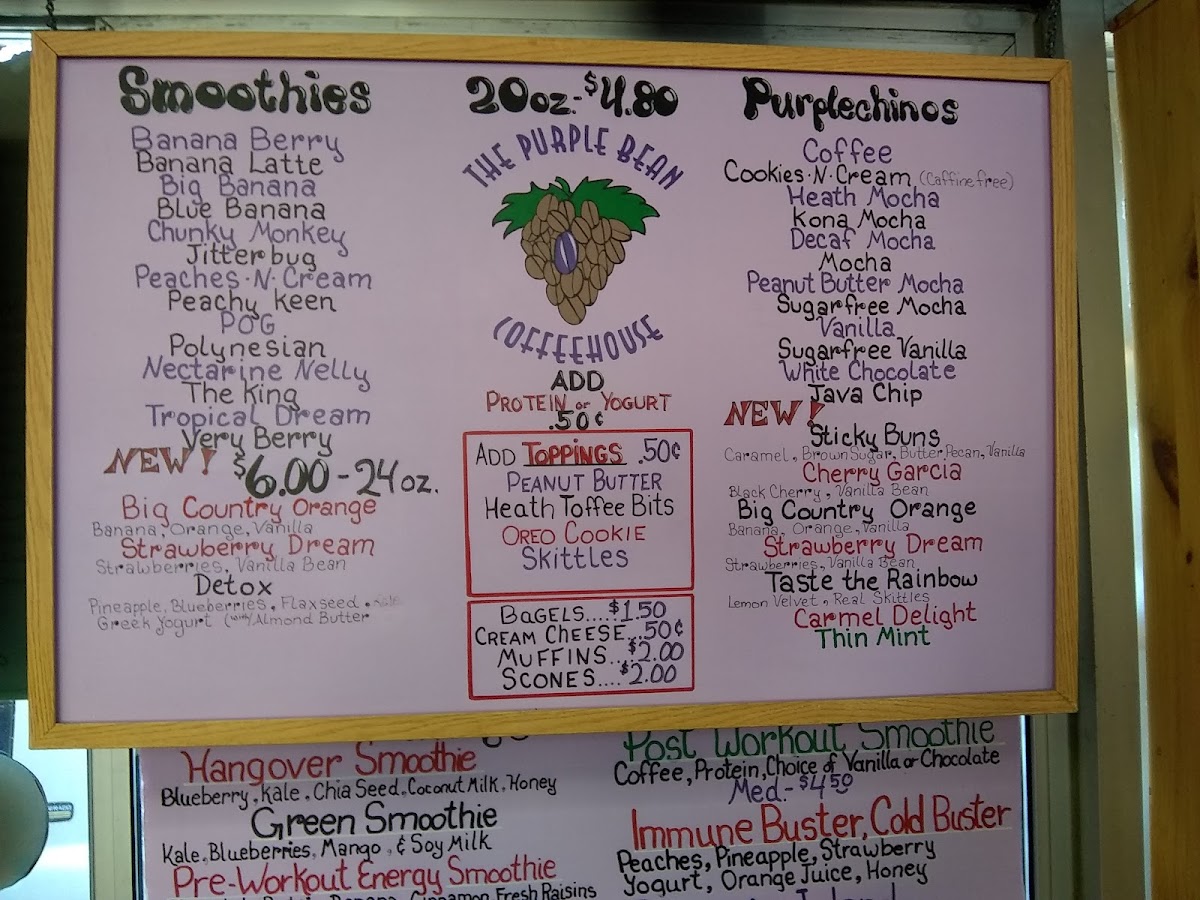 Smoothies
Banana Berry
Banana Latte
Big Banana
Blue Banana
Chunky Monkey
Jitterbug
Peaches·N·Cream
Peachy keen
POG
Polynesian
Nectarine Nelly
The King
Tropical Dream
Very Berry
NEW! $6.00-24oz.
Big Country Orange
Banana, Orange, Vanilla
Strawberry Dream
Strawberries, Vanilla Bean
Detox
Pineapple, Blueberries, Flaxseed,
Greek Yogurt (with/Almond Butter
20oz.-$4.80
THE PURPLE BEAN
COFFEEHOUSE
ADD
PROTEIN or YOGURT
.50¢
ADD TOPPINGS .50¢
PEANUT BUTTER
Heath Toffee Bits
OREO COOKIE
Skittles
BAGELS....$1.50
CREAM CHEESE...50¢
MUFFINS...$2.00
SCONES....$2.00
Purplechinos
Coffee
Cookies·N·Cream (Caffine free)
Heath Mocha
Kona Mocha
Decaf Mocha
Mocha
Peanut Butter Mocha
Sugarfree Mocha
Vanilla
Sugarfree Vanilla
White Chocolate
Java Chip
NEW!
Sticky Buns
Caramel, Brown Sugar, Butter Pecan, Vanilla
Cherry Garcia
Black Cherry, Vanilla Bean
Big Country Orange
Banana, Orange, Vanilla
Strawberry Dream
Strawberries, Vanilla Bean
Taste the Rainbow
Lemon Velvet, Real Skittles
Carmel Delight
Thin Mint
Hangover Smoothie
Blueberry, Kale, Chia Seed, Coconut Milk, Honey
Green Smoothie
Kale, Blueberries, Mango, & Soy Milk
Pre-Workout Energy Smoothie
Banana, Cinnamon Fresh Raisins
Post Workout Smoothie
Coffee, Protein, Choice of Vanilla or Chocolate
Med.-$4.50
Immune Buster, Cold Buster
Peaches, Pineapple, Strawberry
Yogurt, Orange Juice, Honey